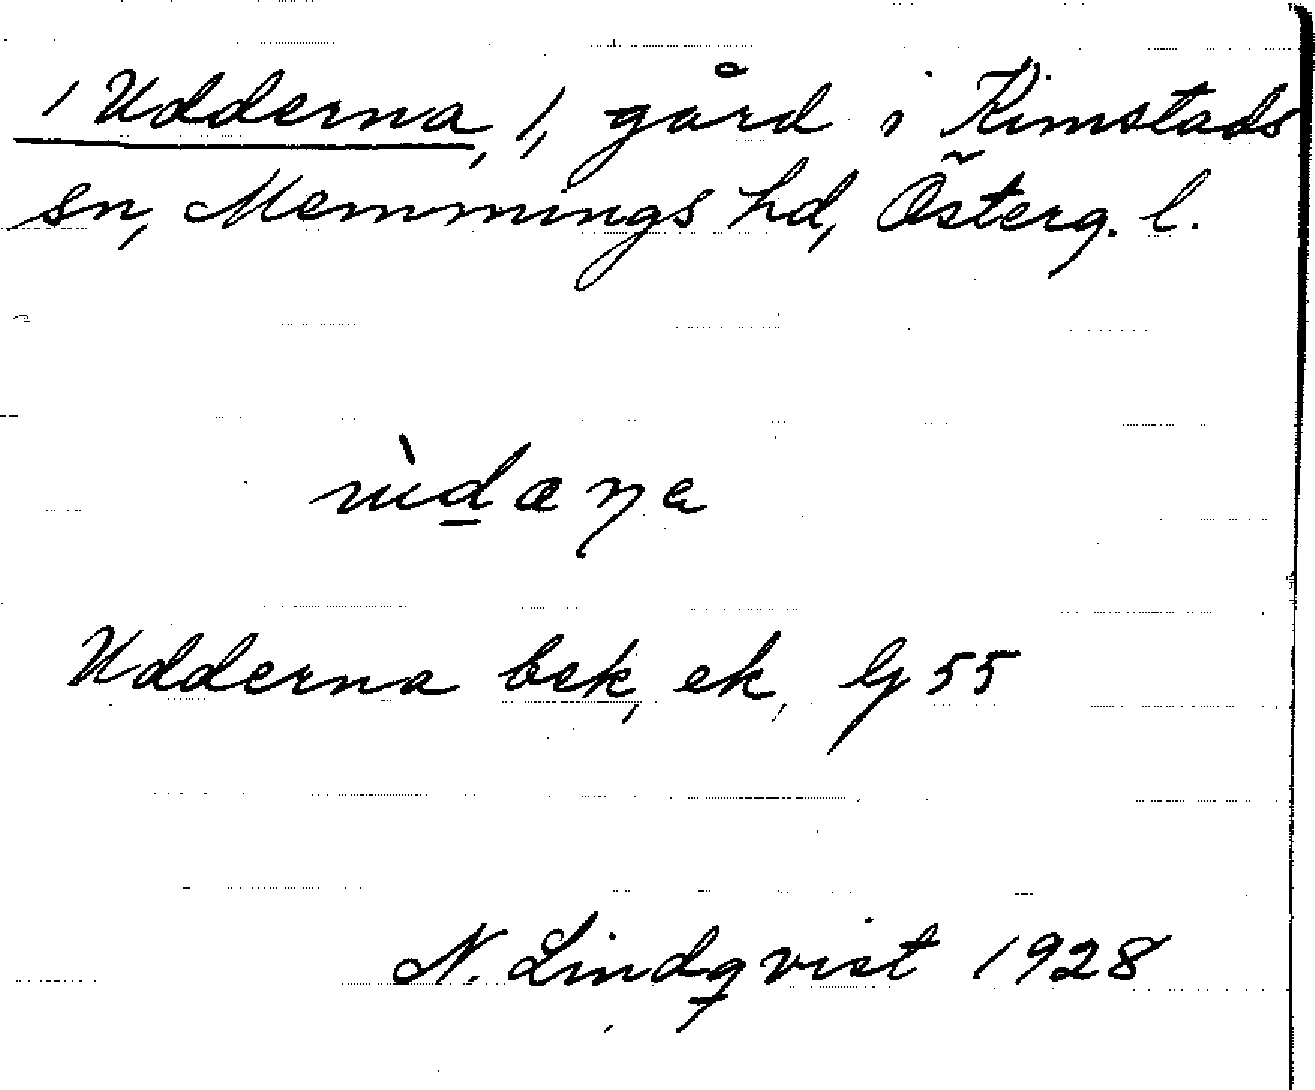 / Udderna, /, gård i Kimstads
sn, Memmings hd, Österg. l.
Udderna bek, ek, Gj 55
N. Lindqvist 1928